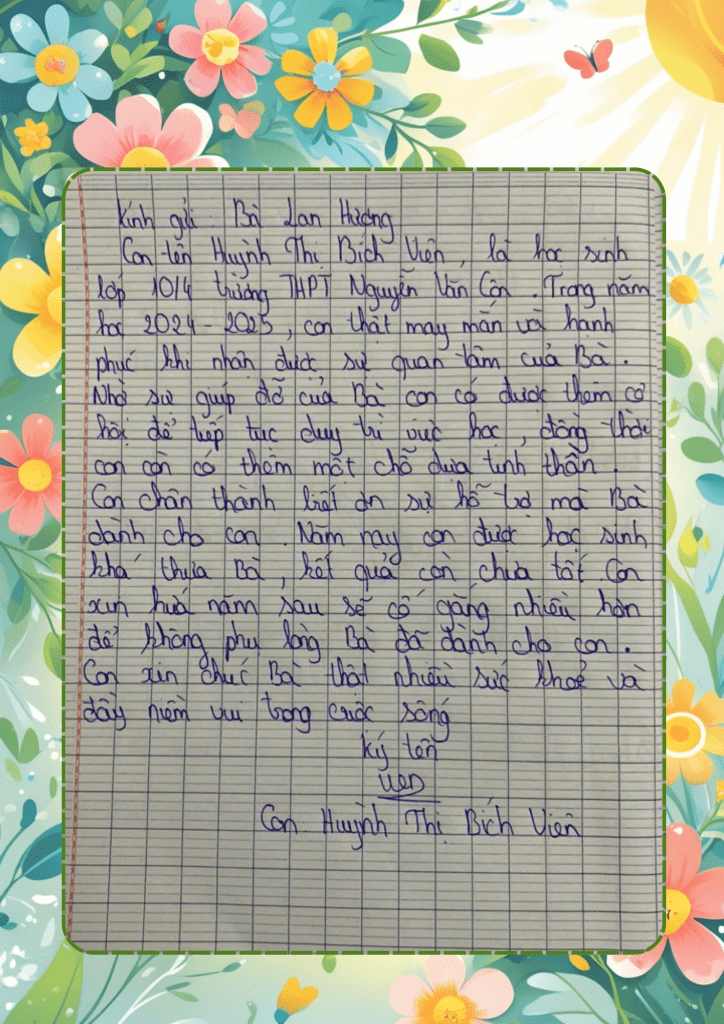 Kính gửi : Bà Lan Hương
Con tên Huỳnh Thị Bích Viên, là học sinh
lớp 10/4 trường THPT Nguyễn Văn Côn. Trong năm
học 2024 - 2025, con thật may mắn và hạnh
phúc khi nhận được sự quan tâm của Bà.
Nhờ sự giúp đỡ của Bà con có được thêm cơ
hội để tiếp tục duy trì việc học, đồng thời
con còn có thêm một chỗ dựa tinh thần.
Con chân thành biết ơn sự hỗ trợ mà Bà
dành cho con. Năm nay con được học sinh
khá thưa Bà, kết quả còn chưa tốt. Con
xin hứa năm sau sẽ cố gắng nhiều hơn
để không phụ lòng Bà đã dành cho con.
Con xin chúc Bà thật nhiều sức khoẻ và
đầy niềm vui trong cuộc sống
Ký tên
Viên
Con Huỳnh Thị Bích Viên